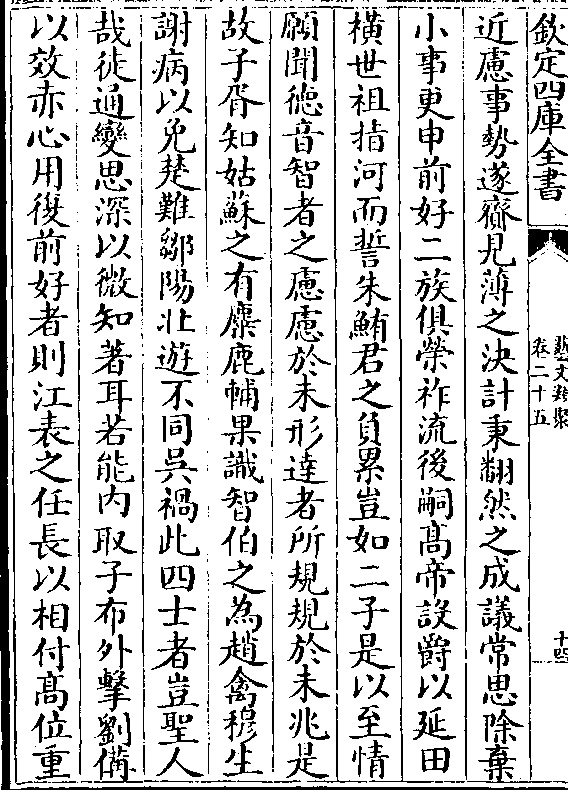 欽定四庫全書
藝文類聚
卷二十五
十四
近慮事勢遂齎見薄之決計秉翻然之成議常思除棄
小事更申前好二族俱榮祚流後嗣髙帝設爵以延田
橫世祖指河而誓朱鮪君之負累豈如二子是以至情
願聞徳音智者之慮慮於未形達者所規規於未兆是
故子胥知姑蘇之有麋鹿輔果識智伯之為趙禽穆生
謝病以免楚難鄒陽北遊不同吳禍此四士者豈聖人
哉徒通變思深以微知著耳若能内取子布外擊劉備
以效赤心用復前好者則江表之任長以相付髙位重